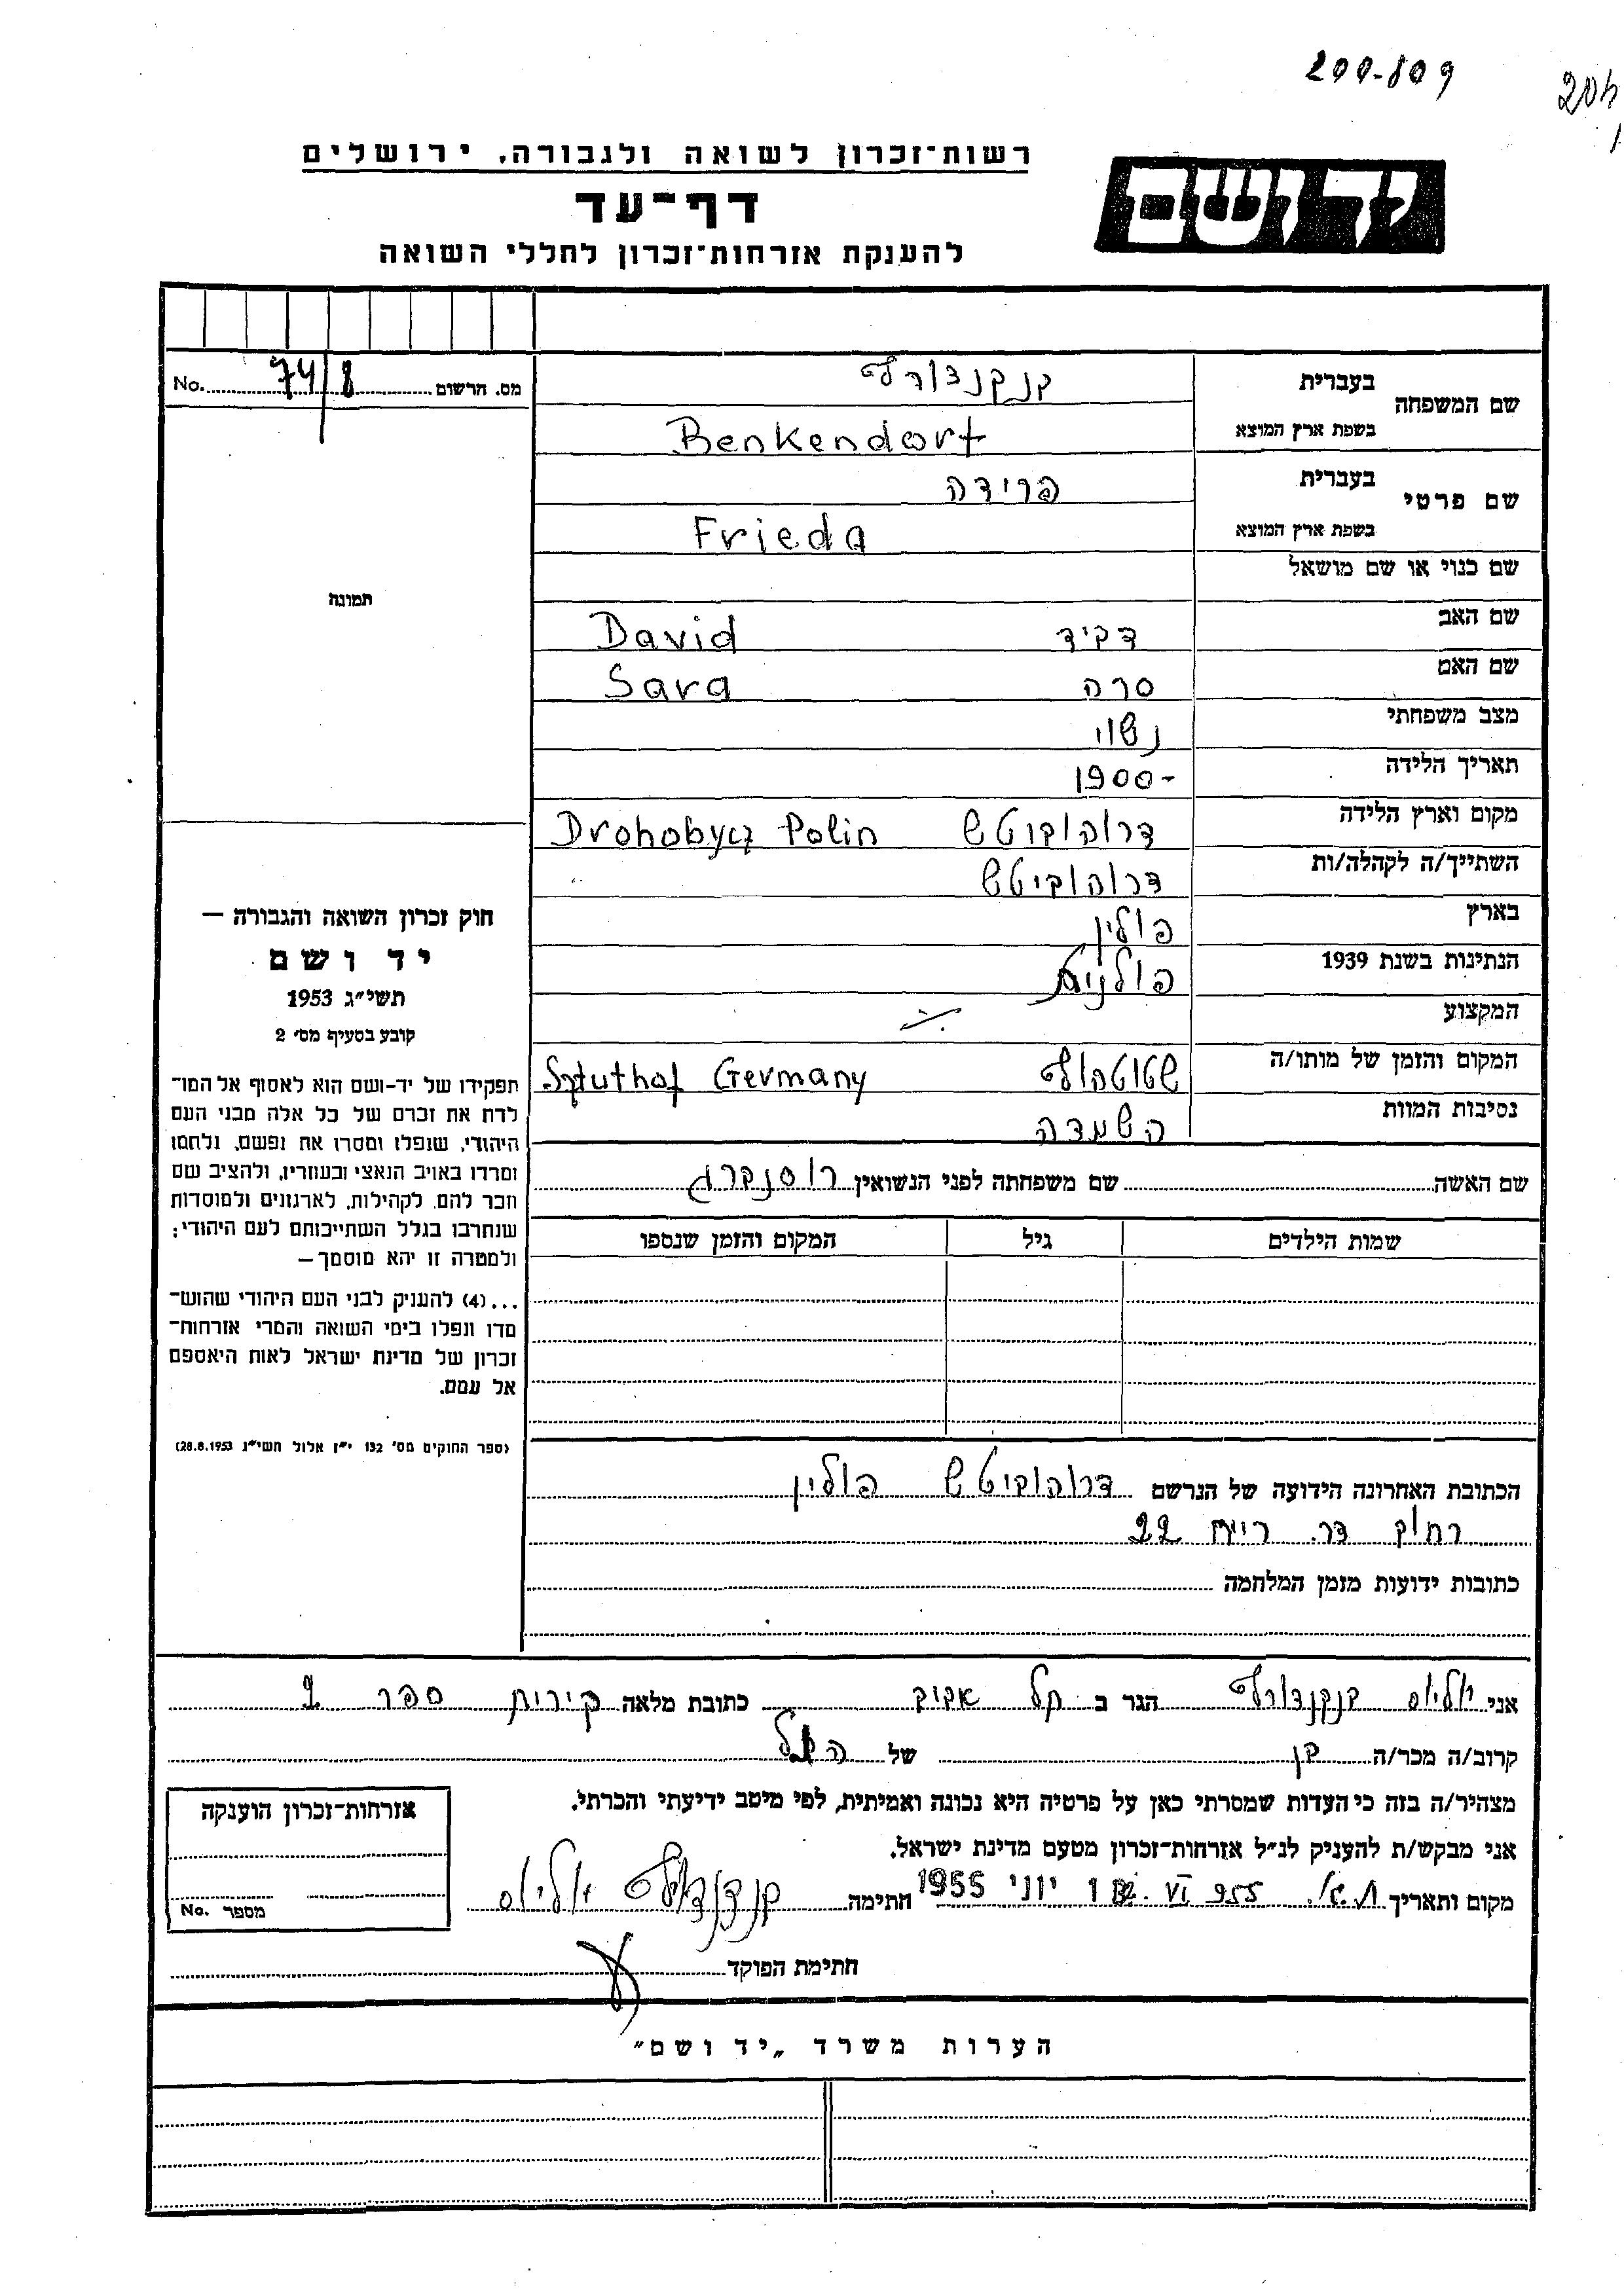 200-809
204
רשות־זכרון לשואה ולגבורה, ירושלים
יד ושם
דף־עד
להענקת אזרחות־זכרון לחללי השואה
No. 74/8 מס. הרשום
שם המשפחה בעברית בנקנדורף
בשפת ארץ המוצא Benkendorf
שם פרטי בעברית פרידה
בשפת ארץ המוצא Frieda
שם כנוי או שם מושאל
תמונה
שם האב דויד David
שם האם שרה Sara
מצב משפחתי נשוי
תאריך הלידה 1900-
מקום וארץ הלידה דרוהוביטש Drohobycz Polin
השתייך/ה לקהלה/ות דרוהוביטש
בארץ פולין
הנתינות בשנת 1939 פולנית
המקצוע
המקום והזמן של מותו/ה שטוטהוף Sztuthof Germany
נסיבות המוות השמדה
שם האשה שם משפחתה לפני הנשואין רוסנברג
שמות הילדים גיל המקום והזמן שנספו
חוק זכרון השואה והגבורה —
יד ושם
תשי״ג 1953
קובע בסעיף מס׳ 2
תפקידו של יד-ושם הוא לאסוף אל המו־
לדת את זכרם של כל אלה מבני העם
היהודי, שנפלו ומסרו את נפשם, נלחמו
ומרדו באויב הנאצי ובעוזריו, ולהציב שם
וזכר להם, לקהילות, לארגונים ולמוסדות
שנחרבו בגלל השתייכותם לעם היהודי;
ולמטרה זו יהא מוסמך —
...(4) להעניק לבני העם היהודי שהוש־
מדו ונפלו בימי השואה והמרי אזרחות־
זכרון של מדינת ישראל לאות היאספם
אל עמם.
(ספר החוקים מס׳ 132 י״ז אלול תשי״ג 28.8.1953)
הכתובת האחרונה הידועה של הנרשם דרוהוביטש פולין
רחוב דר. רייח 22
כתובות ידועות מזמן המלחמה
אני יוליוס בנקנדורף הגר ב תל אביב כתובת מלאה קירית ספר 2
קרוב/ה מכר/ה בן של הנ״ל
מצהיר/ה בזה כי העדות שמסרתי כאן על פרטיה היא נכונה ואמיתית, לפי מיטב ידיעתי והכרתי.
אני מבקש/ת להעניק לנ״ל אזרחות־זכרון מטעם מדינת ישראל.
מקום ותאריך ת.א. 955 .VI יוני 1955 חתימה בנקנדורף יוליוס
חתימת הפוקד
אזרחות־זכרון הוענקה
No. מספר
הערות משרד „יד ושם״